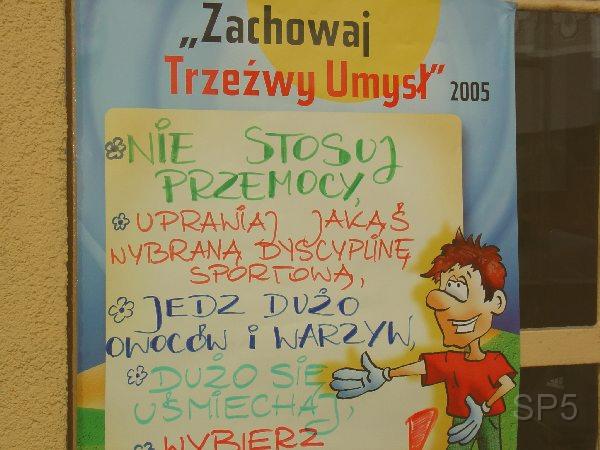 „Zachowaj
Trzeźwy Umysł" 2005
NIE STOSUJ
PRZEMOCY,
UPRAWIAJ JAKĄŚ
WYBRANĄ DYSCYPLINĘ
SPORTOWĄ,
JEDZ DUŻO
OWOCÓW I WARZYW,
DUŻO SIĘ
UŚMIECHAJ,
WYBIERZ
SP5